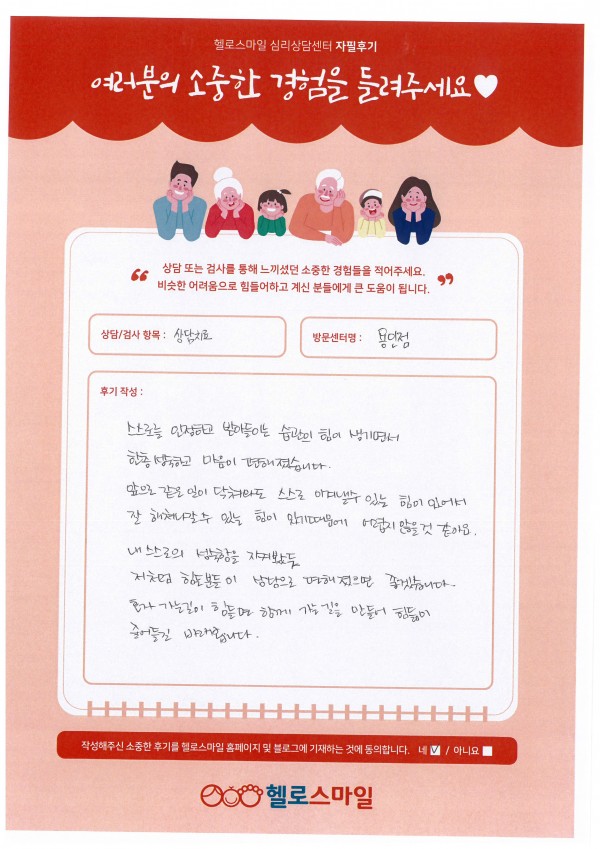 헬로스마일 심리상담센터 자필후기
여러분의 소중한 경험을 들려주세요
상담 또는 검사를 통해 느끼셨던 소중한 경험들을 적어주세요.
비슷한 어려움으로 힘들어하고 계신 분들에게 큰 도움이 됩니다.
상담/검사 항목 : 상담치료
방문센터명 : 용인점
후기 작성 :
스스로를 인정하고 받아들이는 습관의 힘이 생기면서
한층 성숙하고 마음이 편해졌습니다.
앞으로 같은 일이 닥쳐와도 스스로 이겨낼수 있는 힘이 있어서
잘 헤쳐나갈수 있는 힘이 있기때문에 어렵지 않을것 같아요.
내 스스로의 성숙함을 지켜봤듯
저처럼 힘든분들이 상담으로 편해졌으면 좋겠습니다.
혼자 가는길이 힘들면 함께 가는 길을 만들어 힘듦이
줄어들길 바래봅니다.
작성해주신 소중한 후기를 헬로스마일 홈페이지 및 블로그에 기재하는 것에 동의합니다. 네 / 아니요
헬로스마일